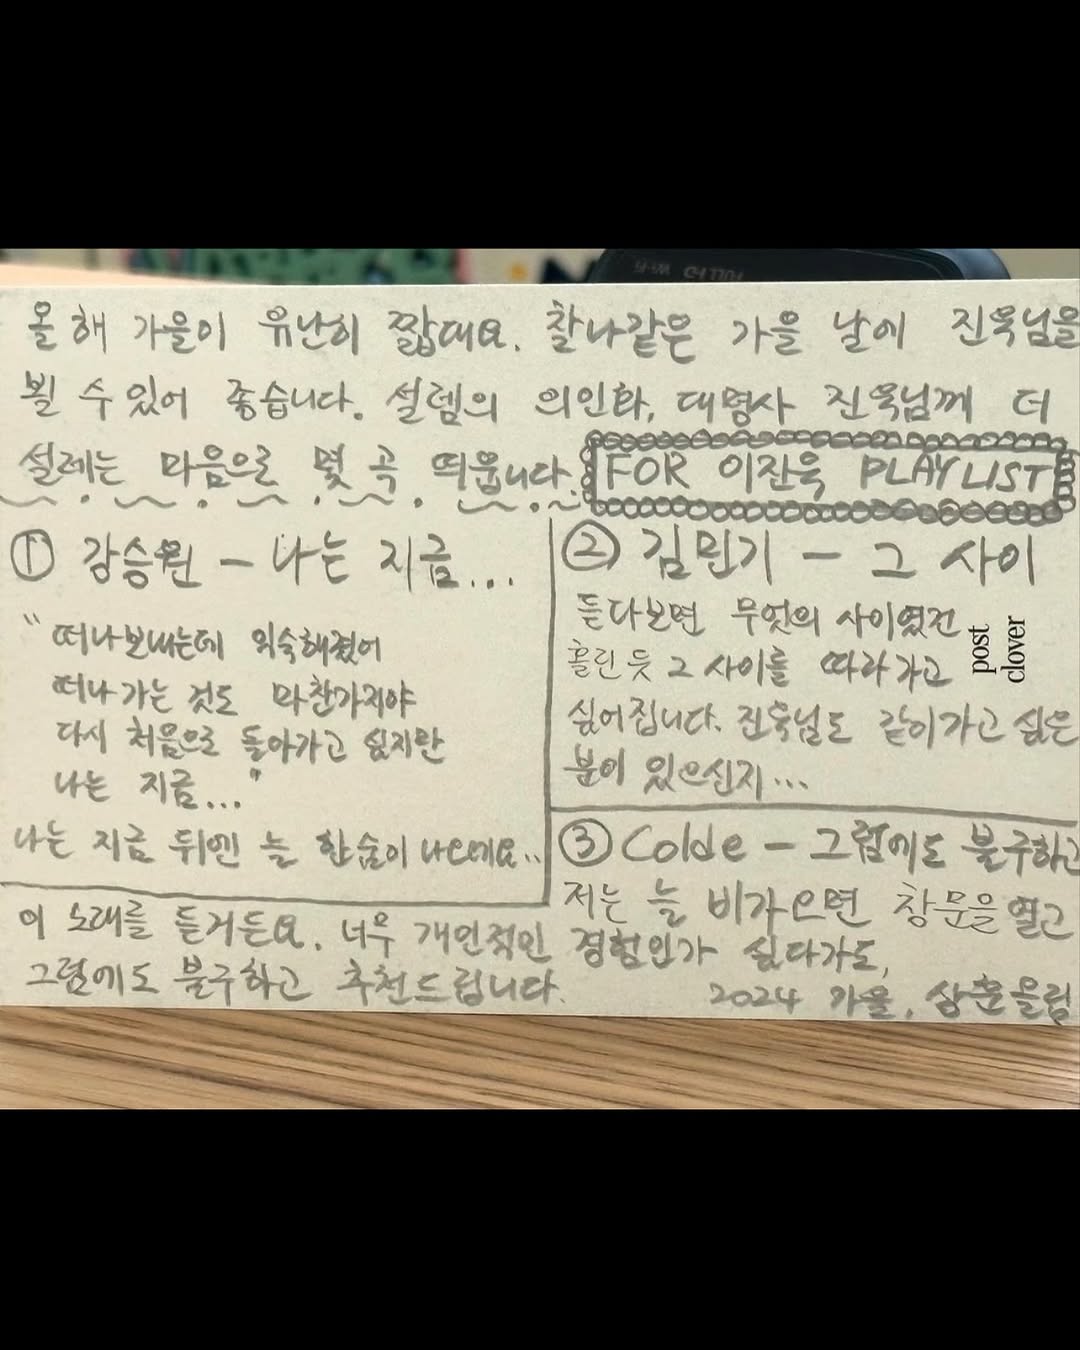 올해 가을이 유난히 짧대요. 찰나같은 가을 날에 진욱님을
뵐 수 있어 좋습니다. 설렘의 의인화, 대명사 진욱님께 더
설레는 마음으로 몇 곡 띄웁니다.
FOR 이진욱 PLAYLIST
① 강승원 - 나는 지금...
"떠나보내는데 익숙해졌어
떠나가는 것도 마찬가지야
다시 처음으로 돌아가고 싶지만
나는 지금..."
나는 지금 뒤엔 늘 한숨이 나오네요..
② 김민기 - 그 사이
듣다보면 무엇의 사이였건
홀린 듯 그 사이를 따라가고
싶어집니다. 진욱님도 같이가고 싶은
분이 있으신지...
post
clover
③ Colde - 그럼에도 불구하고
저는 늘 비가오면 창문을 열고
이 노래를 듣거든요. 너무 개인적인 경험인가 싶다가도,
그럼에도 불구하고 추천드립니다.
2024 가을,